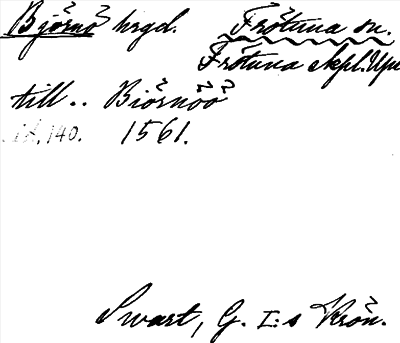 Björnö hrgd. Frötuna sn.
Frötuna skpl. Upl.
till .. Biörnöö
s. 140. 1561.
Swart, G. I:s Krön.